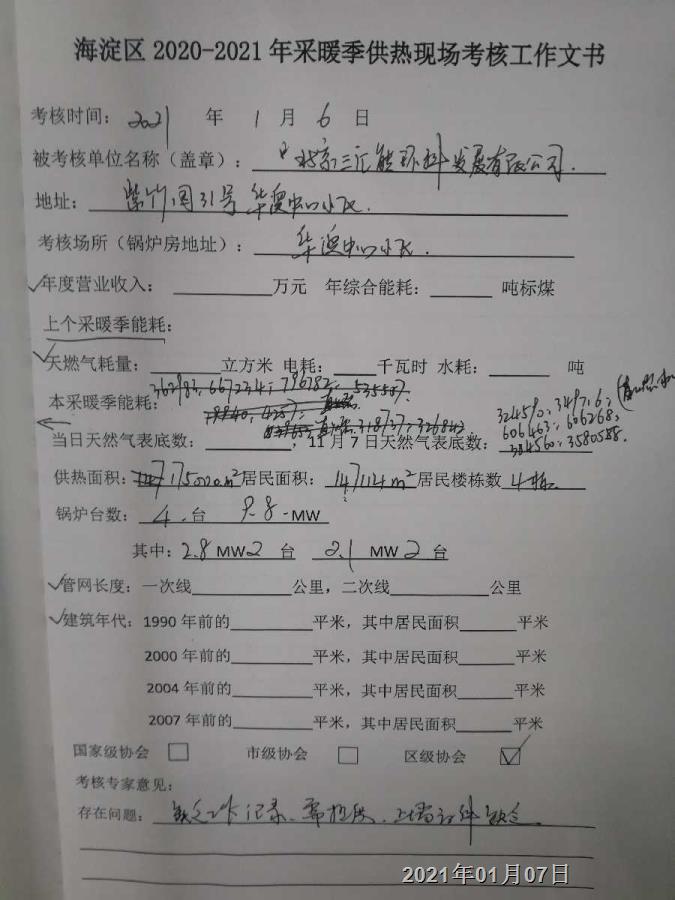 海淀区 2020-2021 年采暖季供热现场考核工作文书
考核时间：2021 年 1 月 6 日
被考核单位名称（盖章）：北京三汇能环科发展有限公司.
地址：紫竹园31号 华澳中心小区.
考核场所（锅炉房地址）：华澳中心小区.
年度营业收入： 万元 年综合能耗： 吨标煤
上个采暖季能耗：
天燃气耗量： 立方米 电耗： 千瓦时 水耗： 吨
本采暖季能耗：
324590、349716、
606463、606268、
当日天然气表底数： ，11 月 7 日天然气表底数：334560、3580558.
供热面积：175000m² 居民面积：147114m² 居民楼栋数 4栋.
锅炉台数：4. 台 9.8 -MW
其中：2.8 MW 2 台 2.1 MW 2 台
管网长度：一次线 公里，二次线 公里
建筑年代：1990 年前的 平米，其中居民面积 平米
2000 年前的 平米，其中居民面积 平米
2004 年前的 平米，其中居民面积 平米
2007 年前的 平米，其中居民面积 平米
国家级协会 市级协会 区级协会
考核专家意见：
存在问题：缺乏工作记录、上墙文件缺乏.
2021年01月07日